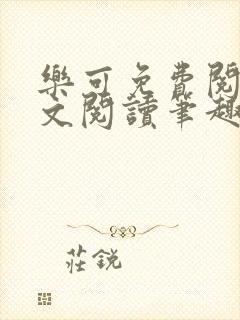 樂可免費閱
文閱讀筆趣
莊銳